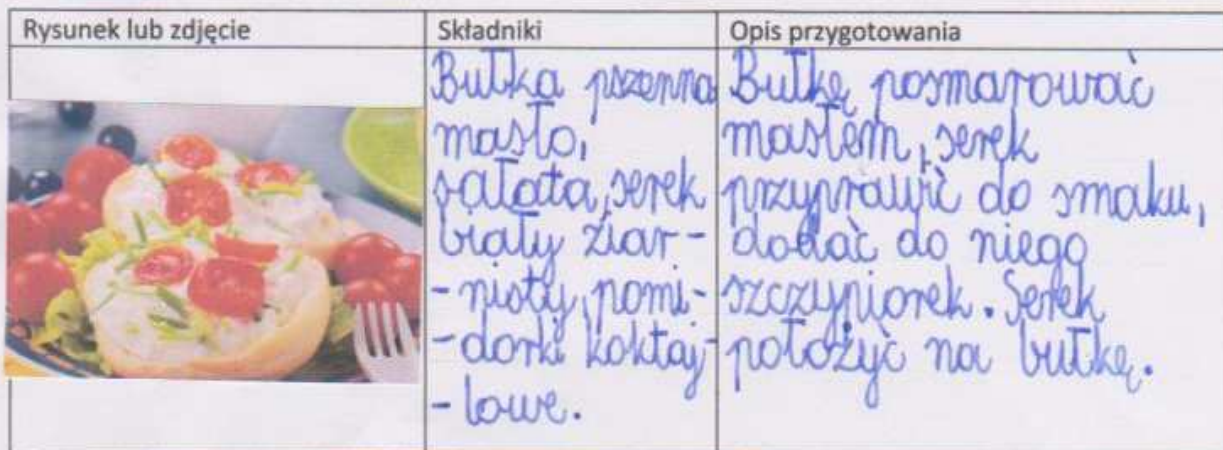 Rysunek lub zdjęcie
Składniki
Opis przygotowania
Bułka pszenna
masło,
sałata, serek
biały ziar-
-nisty, pomi-
-dorki koktaj-
-lowe.
Bułkę posmarować
masłem, serek
przyprawić do smaku,
dodać do niego
szczypiorek. Serek
położyć na bułkę.